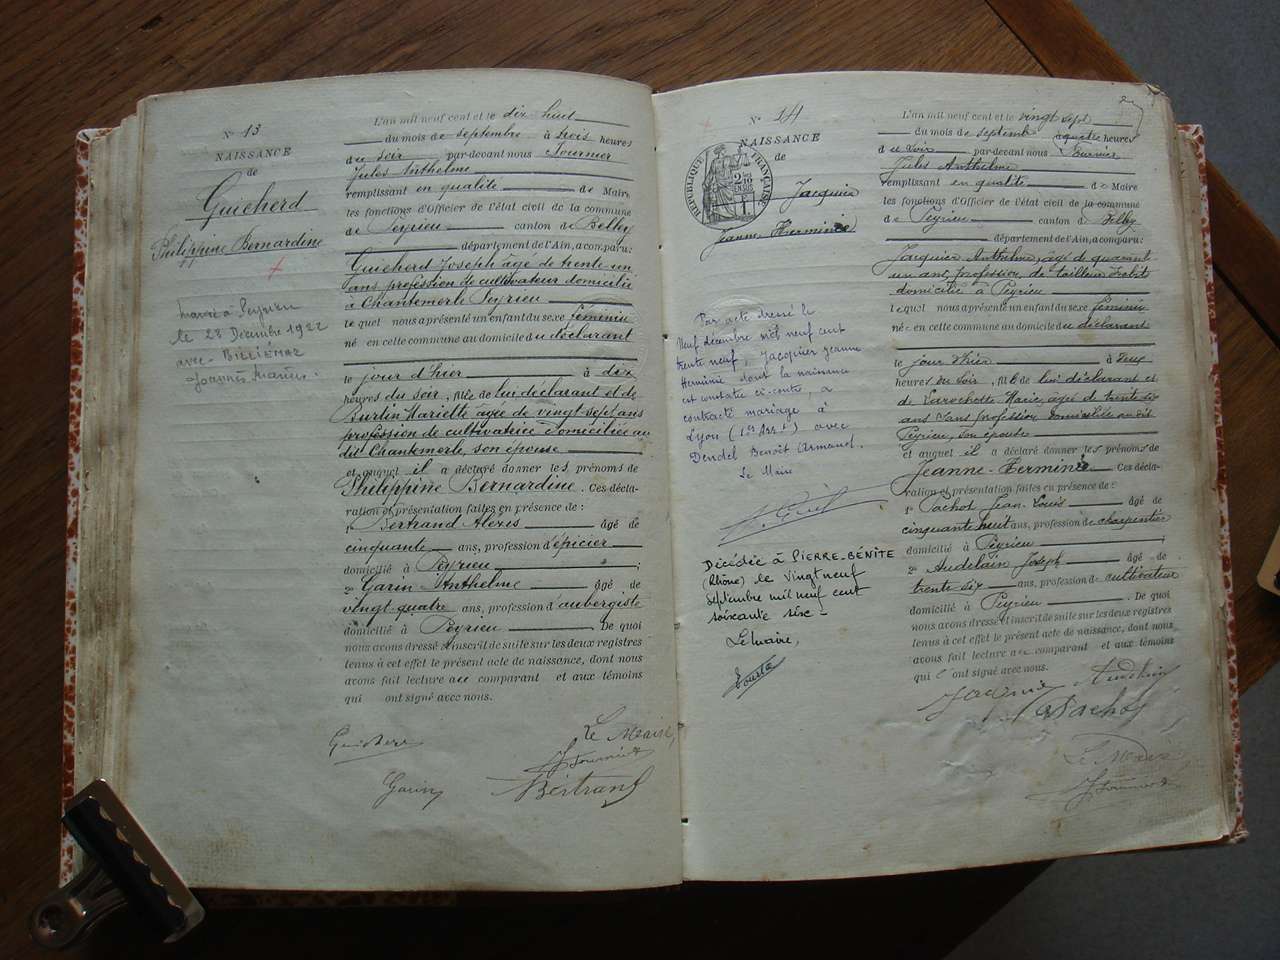 N° 13
NAISSANCE
de
Guicherd
Philippine Bernardine
Marié à Peyrieu
le 23 Décembre 1922
avec BILLIEMAZ
Joannès Marius.
L'an mil neuf cent et le dix huit
du mois de septembre à trois heures
du soir par-devant nous Fournier
Jules Anthelme
remplissant en qualité de Maire
les fonctions d'Officier de l'état civil de la commune
de Peyrieu canton de Belley
département de l'Ain, a comparu:
Guicherd Joseph âgé de trente un
ans profession de cultivateur domicilié
à Chantemerle Peyrieu
lequel nous a présenté un enfant du sexe féminin
né en cette commune au domicile du déclarant
le jour d'hier à dix
heures du soir, fille de lui déclarant et de
Burtin Mariette âgée de vingt sept ans
profession de cultivatrice domiciliée au
dit Chantemerle, son épouse
et auquel il a déclaré donner les prénoms de
Philippine Bernardine. Ces décla-
ration et présentation faites en présence de:
1° Bertrand Alexis âgé de
cinquante ans, profession d'épicier
domicilié à Peyrieu;
2° Garin Anthelme âgé de
vingt quatre ans, profession d'aubergiste
domicilié à Peyrieu. De quoi
nous avons dressé et inscrit de suite sur les deux registres
tenus à cet effet le présent acte de naissance, dont nous
avons fait lecture au comparant et aux témoins
qui ont signé avec nous.
Guicherd
Le Maire,
J Fournier
Garin
Bertrand
N° 14
NAISSANCE
de
RÉPUBLIQUE FRANÇAISE
Jacquier
Jeanne-Herminie
Par acte dressé le
neuf décembre mil neuf cent
trente neuf, Jacquier Jeanne
Herminie dont la naissance
est constatée ci-contre, a
contracté mariage à
Lyon (1er Arrt) avec
Dendel Benoît Armand.
Le Maire
Décédée à PIERRE-BÉNITE
(Rhône) le vingt neuf
Septembre mil neuf cent
soixante six -
Le Maire,
L'an mil neuf cent et le vingt sept
du mois de septemb à quatre heures
du soir par-devant nous Fournier
Jules Anthelme
remplissant en qualité de Maire
les fonctions d'Officier de l'état civil de la commune
de Peyrieu canton de Belley
département de l'Ain, a comparu:
Jacquier Anthelme, âgé de quarante
un ans, profession de tailleur d'habit
domicilié à Peyrieu
lequel nous a présenté un enfant du sexe féminin
né en cette commune au domicile du déclarant
le jour d'hier à deux
heures du soir, fille de lui déclarant et
de Larochette Marie, âgée de trente six
ans sans profession domiciliée au dit
Peyrieu, son épouse
et auquel il a déclaré donner les prénoms de
Jeanne-Herminie Ces décla-
ration et présentation faites en présence de:
1° Pachot Jean-Louis âgé de
cinquante huit ans, profession de charpentier
domicilié à Peyrieu;
2° Audelain Joseph âgé de
trente six ans, profession de cultivateur
domicilié à Peyrieu. De quoi
nous avons dressé et inscrit de suite sur les deux registres
tenus à cet effet le présent acte de naissance, dont nous
avons fait lecture au comparant et aux témoins
qui ont signé avec nous.
Jacquier Audelain
Pachot
Le Maire
J Fournier